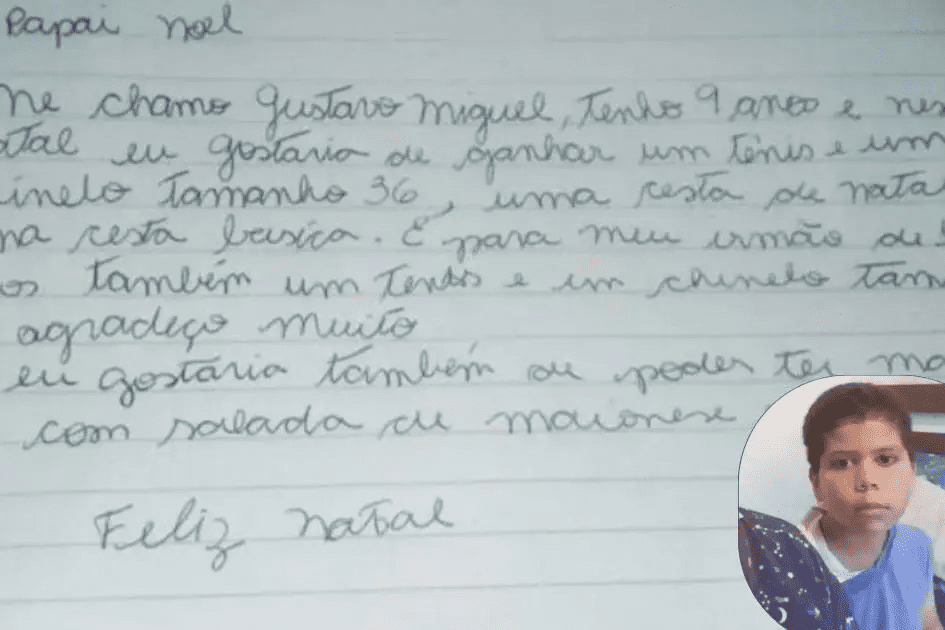 Papai Noel
me chamo Gustavo Miguel, tenho 9 anos e nes
atal eu gostaria de ganhar um tênis e um
inelo tamanho 36, uma cesta de nata
ma cesta basica. E para meu irmão de
os também um tenis e um chinelo tam
agradeço muito
eu gostaria também de poder ter ma
com salada de maionese
Feliz natal